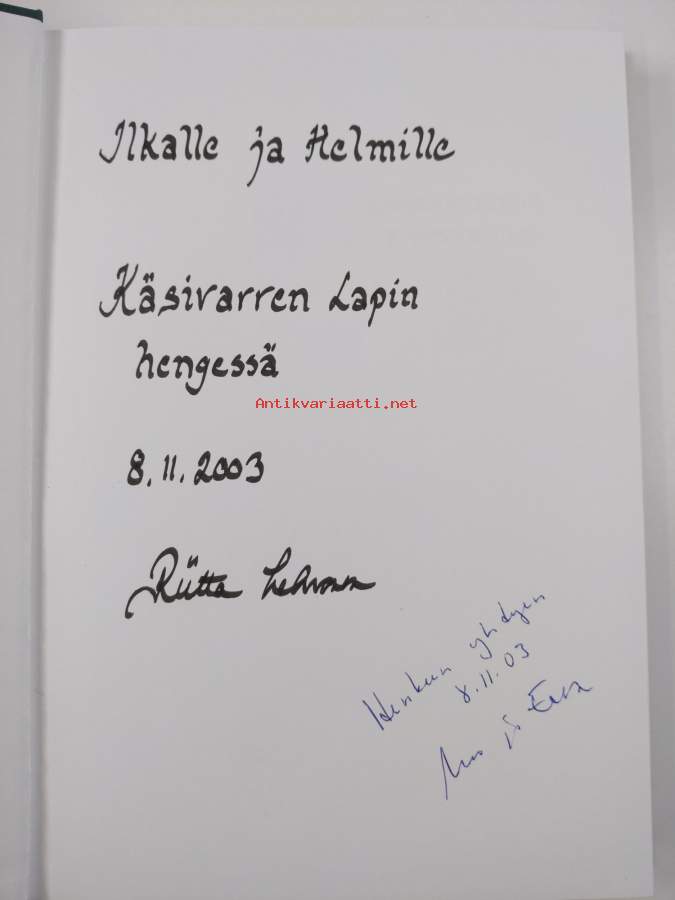 Ilkalle ja Helmille
Käsivarren Lapin
hengessä
Antikvariaatti.net
8.11.2003
Riitta Lehvonen
Henkeen yhdyen
8.11.03
ja Eeva